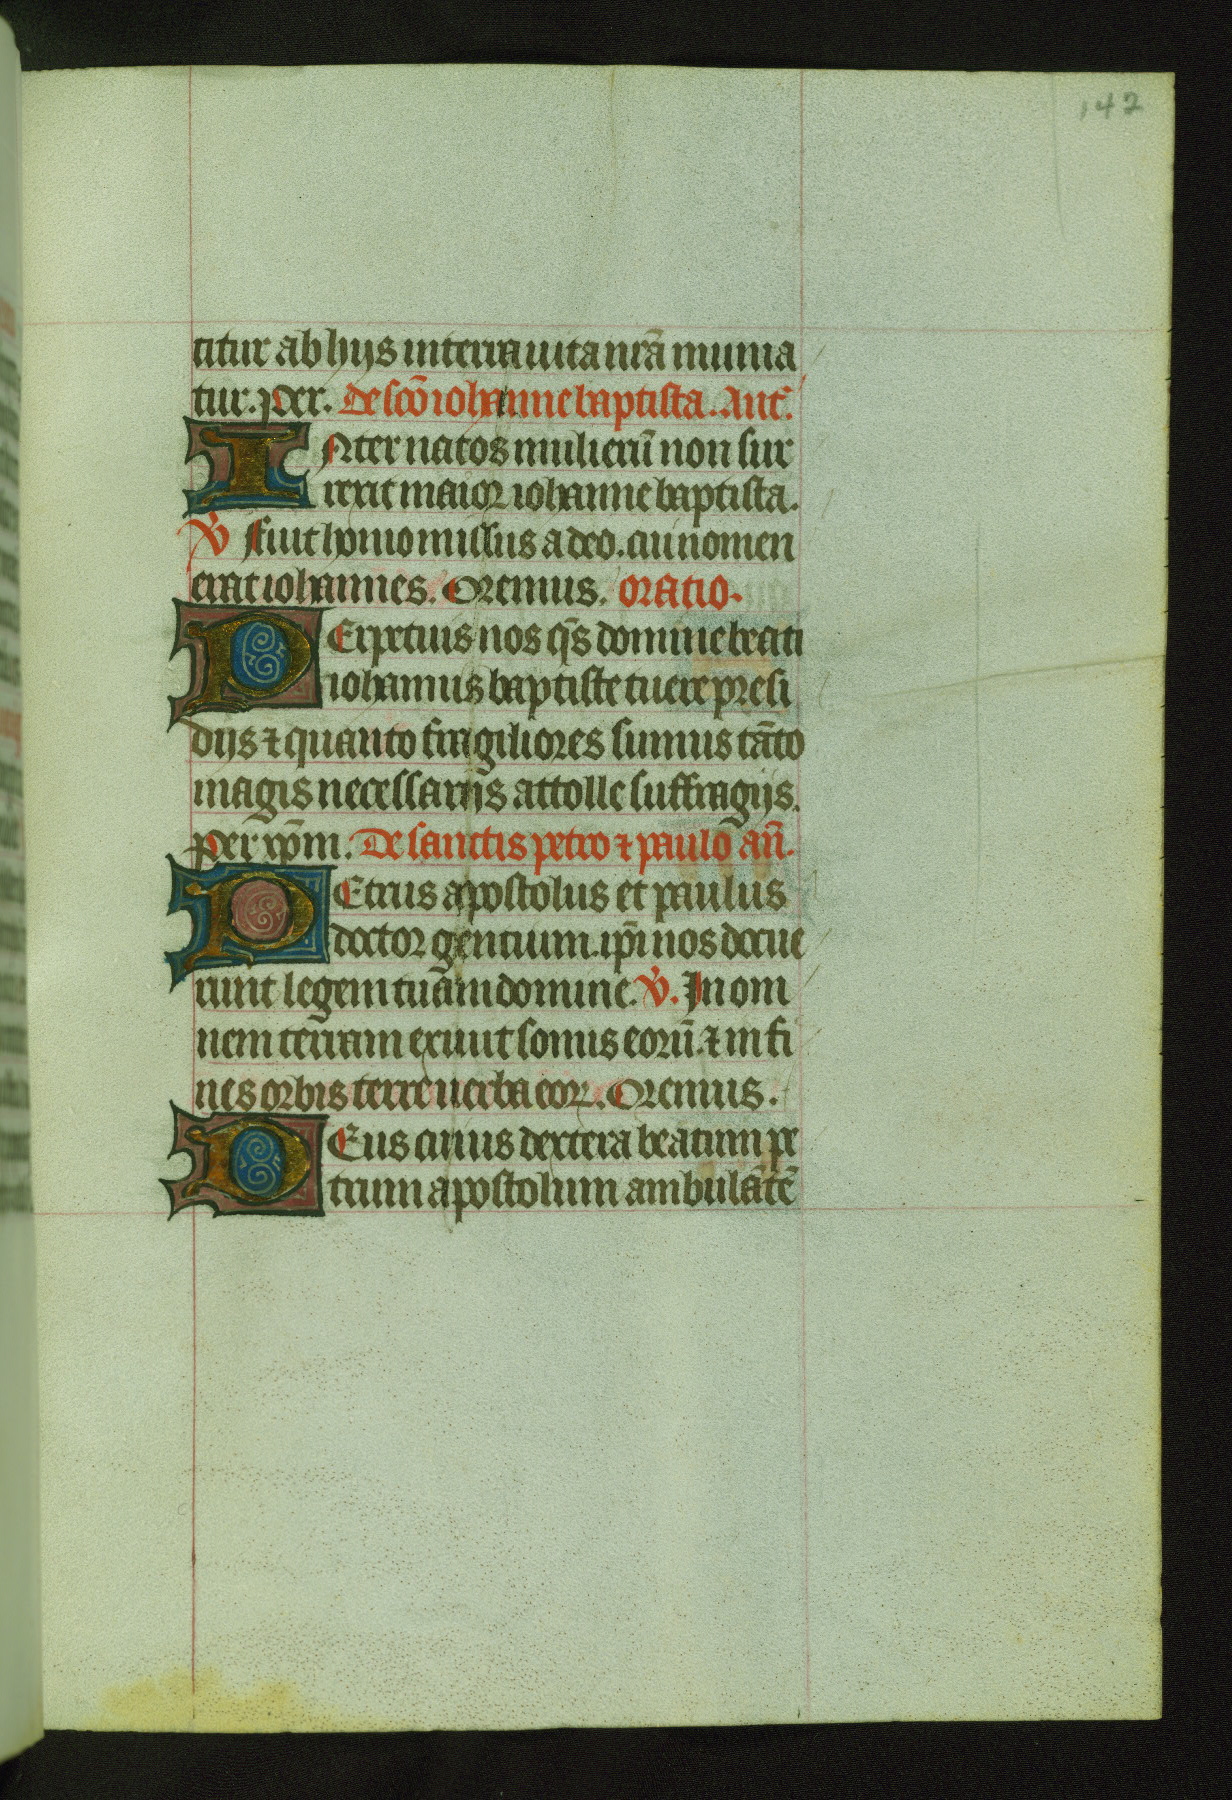 142
titur ab hijs in terra uita nr̄a munia
tur. Per. De scō iohanne baptista. Ant̄.
INter natos mulierū non sur
rexit maior iohanne baptista.
V Fuit homo missus a deo. cui nomen
erat iohannes. Oremus. oratio.
PErpetuis nos q̄s domine beati
iohannis baptiste tuere presi
dijs ⁊ quanto fragiliores sumus tāto
magis necessarijs attolle suffragijs.
Per xp̄m. De sanctis petro ⁊ paulo an̄.
PEtrus apostolus et paulus
doctor gentium. ip̄i nos docue
runt legem tuam domine. V. In om
nem terram exiuit sonus eorū. ⁊ in fi
nes orbis terre uerba eoꝝ. Oremus.
DEus cuius dextera beatum pe
trum apostolum ambulātē